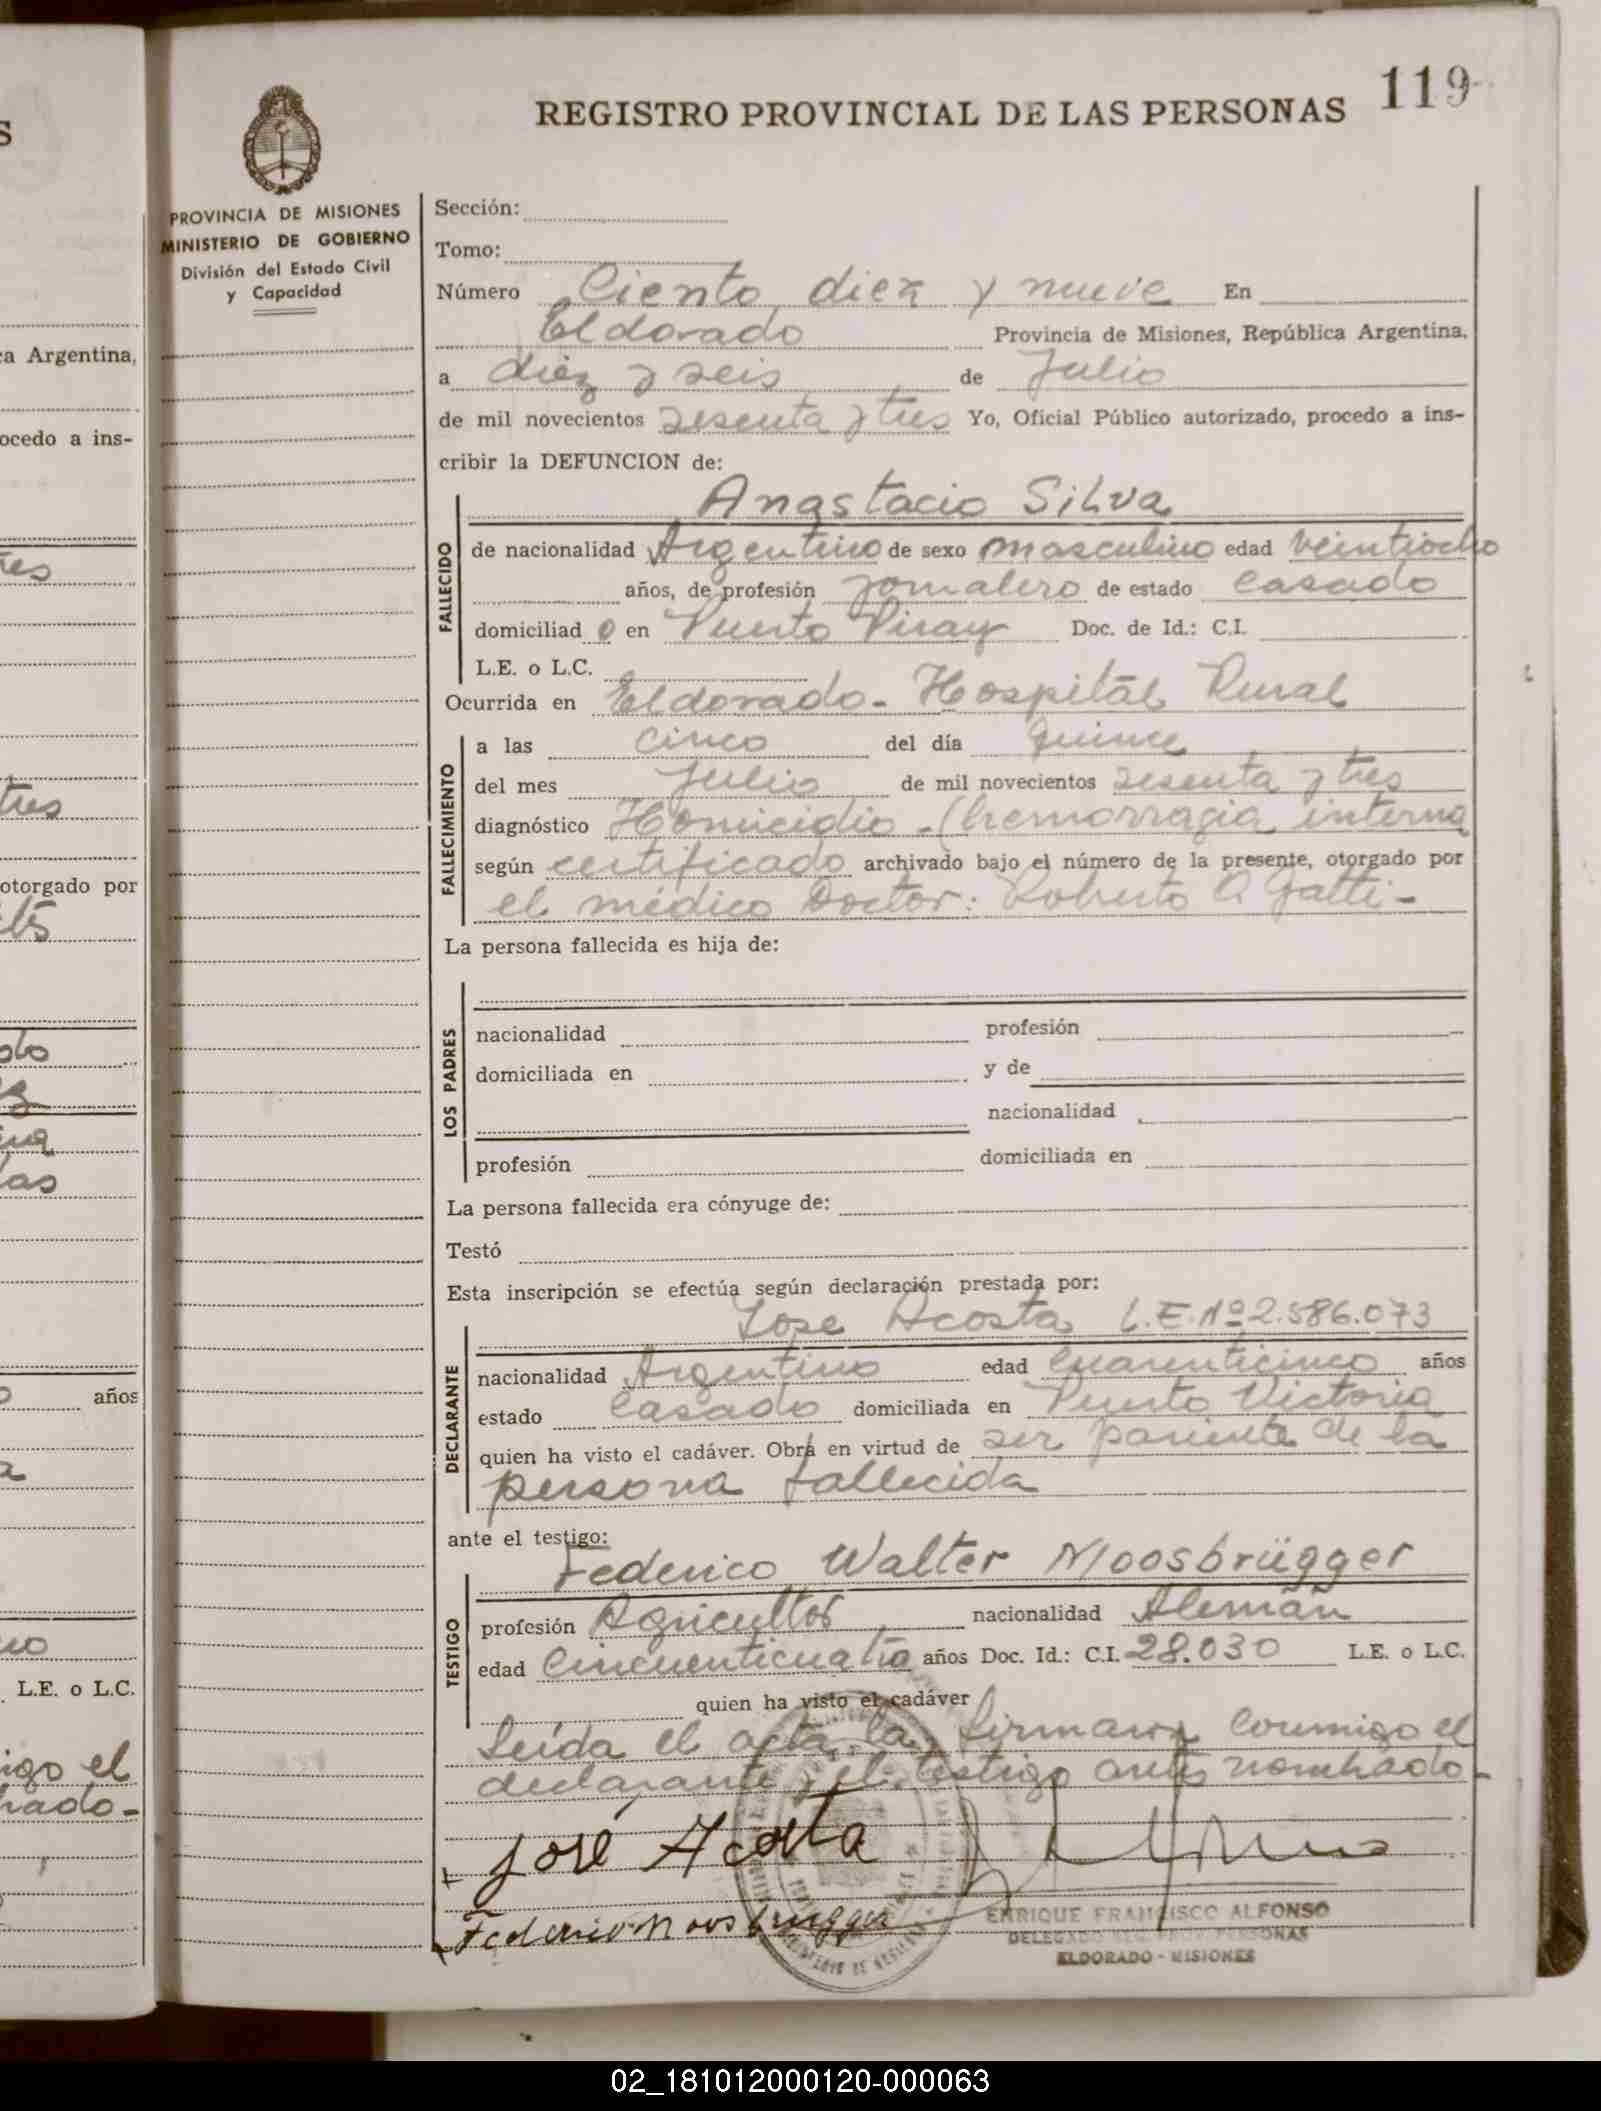 119
REGISTRO PROVINCIAL DE LAS PERSONAS
PROVINCIA DE MISIONES
MINISTERIO DE GOBIERNO
División del Estado Civil
y Capacidad
Sección:
Tomo:
Número Ciento diez y nueve En
Eldorado Provincia de Misiones, República Argentina,
a diez y seis de Julio
de mil novecientos sesenta y tres Yo, Oficial Público autorizado, procedo a ins-
cribir la DEFUNCION de:
Anastacio Silva
FALLECIDO
de nacionalidad Argentino de sexo masculino edad veintiocho
años, de profesión jornalero de estado casado
domiciliad o en Puerto Piray Doc. de Id.: C.I.
L.E. o L.C.
Ocurrida en Eldorado - Hospital Rural
FALLECIMIENTO
a las cinco del día quince
del mes Julio de mil novecientos sesenta y tres
diagnóstico Homicidio - (hemorragia interna
según certificado archivado bajo el número de la presente, otorgado por
el médico Doctor: Roberto A Gatti -
La persona fallecida es hija de:
LOS PADRES
nacionalidad profesión
domiciliada en y de
nacionalidad
profesión domiciliada en
La persona fallecida era cónyuge de:
Testó
Esta inscripción se efectúa según declaración prestada por:
Jose Acosta L.E. Nº 2.586.073
DECLARANTE
nacionalidad Argentino edad cuarenticinco años
estado casado domiciliada en Puerto Victoria
quien ha visto el cadáver. Obra en virtud de ser pariente de la
persona fallecida
ante el testigo:
Federico Walter Moosbrügger
TESTIGO
profesión Agricultor nacionalidad Alemán
edad Cincuenticuatro años Doc. Id.: C.I. 28.030 L.E. o L.C.
quien ha visto el cadáver
Leída el acta la firmaron conmigo el
declarante y el testigo antes nombrado -
José Acosta
Federico Moosbrugger
ENRIQUE FRANCISCO ALFONSO
DELEGADO REG. PROV. PERSONAS
ELDORADO - MISIONES
S
ca Argentina,
ocedo a ins-
tres
tres
otorgado por
años
L.E. o L.C.
igo el
02_181012000120-000063